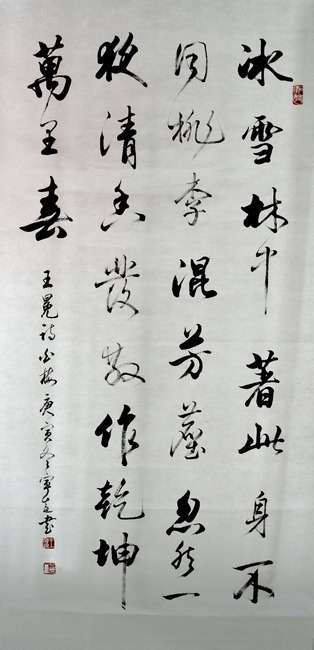 冰雪林中著此身不
同桃李混芳塵忽然一
夜清香發散作乾坤
萬里春
王冕詩白梅庚寅冬書